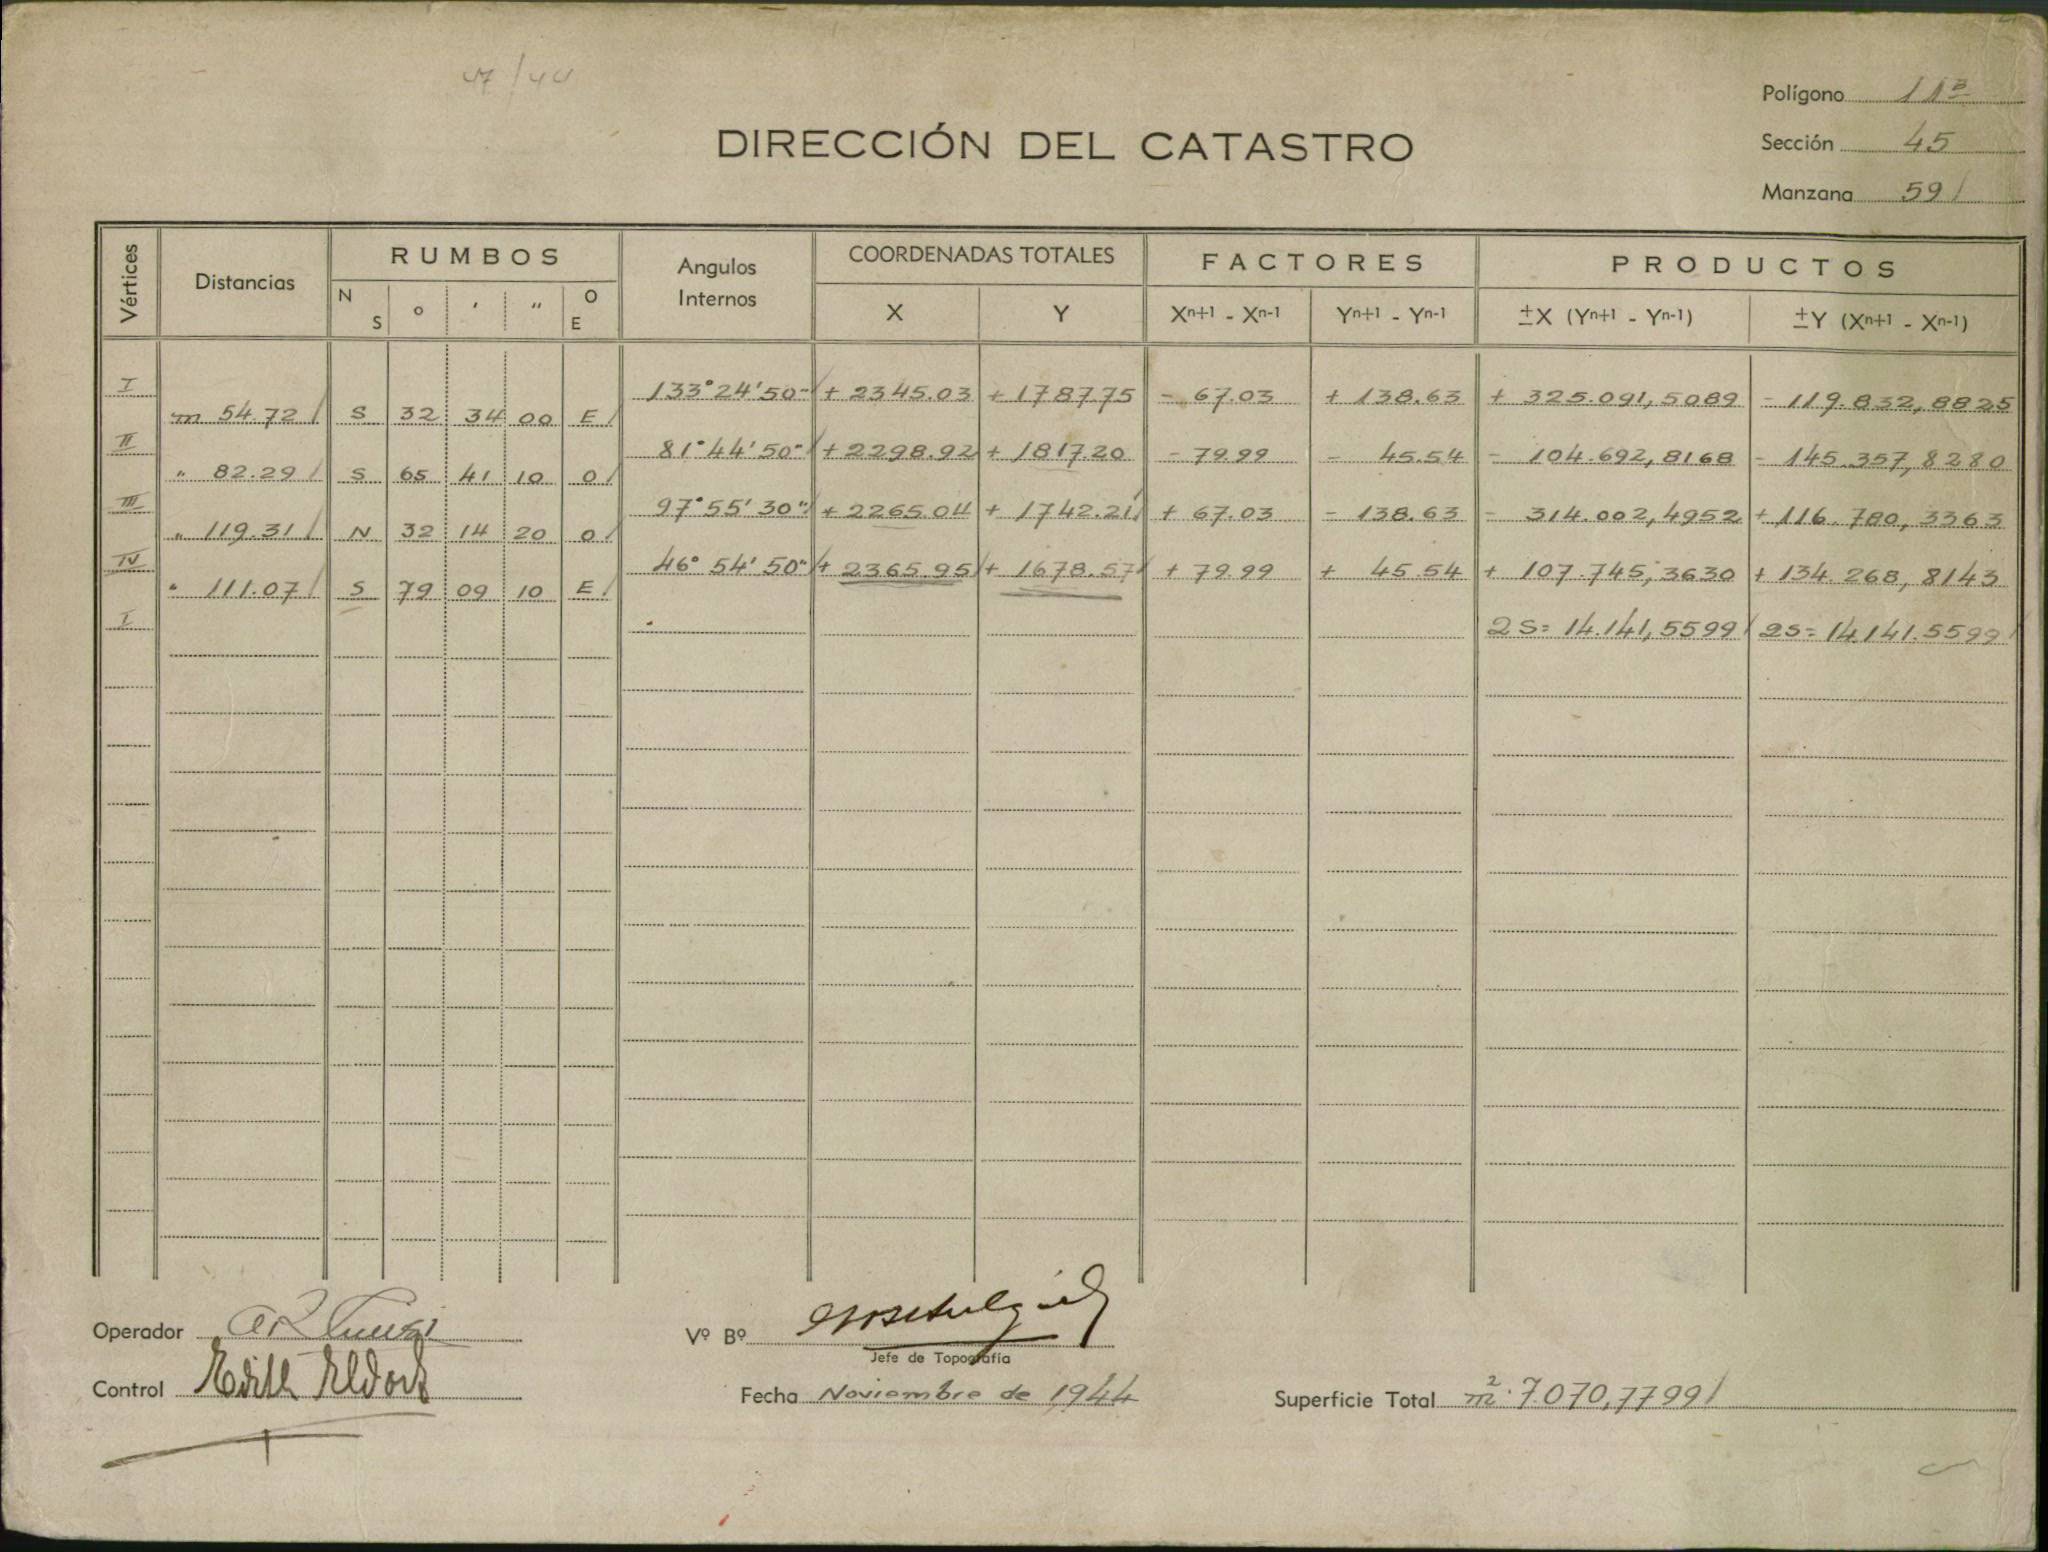 47/44
Polígono 11B
DIRECCIÓN DEL CATASTRO
Sección 45
Manzana 591
Vértices Distancias RUMBOS Angulos Internos COORDENADAS TOTALES FACTORES PRODUCTOS
N S ° ' " O E X Y Xn+1 - Xn-1 Yn+1 - Yn-1 ±X (Yn+1 - Yn-1) ±Y (Xn+1 - Xn-1)
I 133°24'50" + 2345.03 + 1787.75 - 67.03 + 138.63 + 325.091,5089 - 119.832,8825
m 54.72 S 32 34 00 E
II 81°44'50" + 2298.92 + 1817.20 - 79.99 - 45.54 - 104.692,8168 - 145.357,8280
" 82.29 S 65 41 10 O
III 97°55'30" + 2265.04 + 1742.21 + 67.03 - 138.63 - 314.002,4952 + 116.780,3363
" 119.31 N 32 14 20 O
IV 46°54'50" + 2365.95 + 1678.57 + 79.99 + 45.54 + 107.745,3630 + 134.268,8143
" 111.07 S 79 09 10 E
I 2S= 14.141,5599 2S= 14.141.5599
Operador
Vº Bº
Jefe de Topografía
Control Edith Eldort
Fecha Noviembre de 1944
Superficie Total m² 7.070,7799